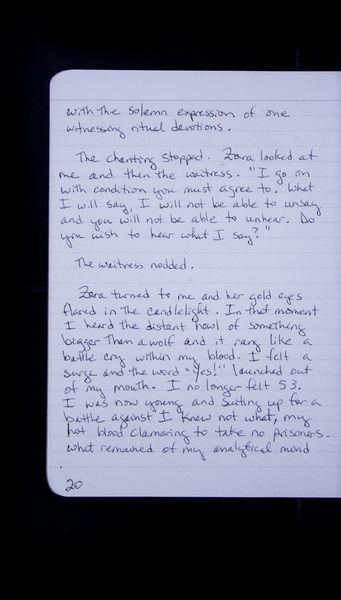 with the solemn expression of one
witnessing ritual devotions.
The chanting stopped. Zara looked at
me and then the waitress. "I go on
with condition you must agree to. What
I will say, I will not be able to unsay
and you will not be able to unhear. Do
you wish to hear what I say?"
The waitress nodded.
Zara turned to me and her gold eyes
flared in the candlelight. In that moment
I heard the distant howl of something
bigger than a wolf and it rang like a
battle cry within my blood. I felt a
surge and the word "Yes!" launched out
of my mouth. I no longer felt 53.
I was now young and suiting up for a
battle against I knew not what, my
hot blood clamoring to take no prisoners.
What remained of my analytical mind
20